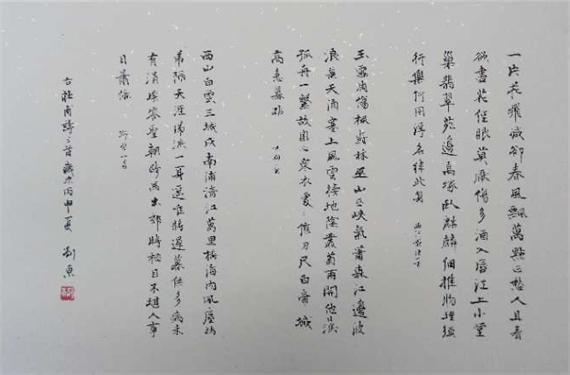 一片花飛減却春風飄萬點正愁人且看
欲盡花經眼莫厭傷多酒入唇江上小堂
巢翡翠苑邊高塚臥麒麟細推物理須
行樂何用浮名絆此身
玉露凋傷楓樹林巫山巫峽氣蕭森江邊波
浪兼天涌塞上風雲接地陰叢菊兩開他日淚
孤舟一繫故園心寒衣處處催刀尺白帝城
高急暮砧
西山白雪三城戍南浦清江萬里橋海内風塵諸
弟隔天涯涕淚一身遥唯將遲暮供多病未
有涓埃答聖朝跨馬出郊時極目不堪人事
日蕭條 野望
杜甫詩三首歲次丙申夏 劉